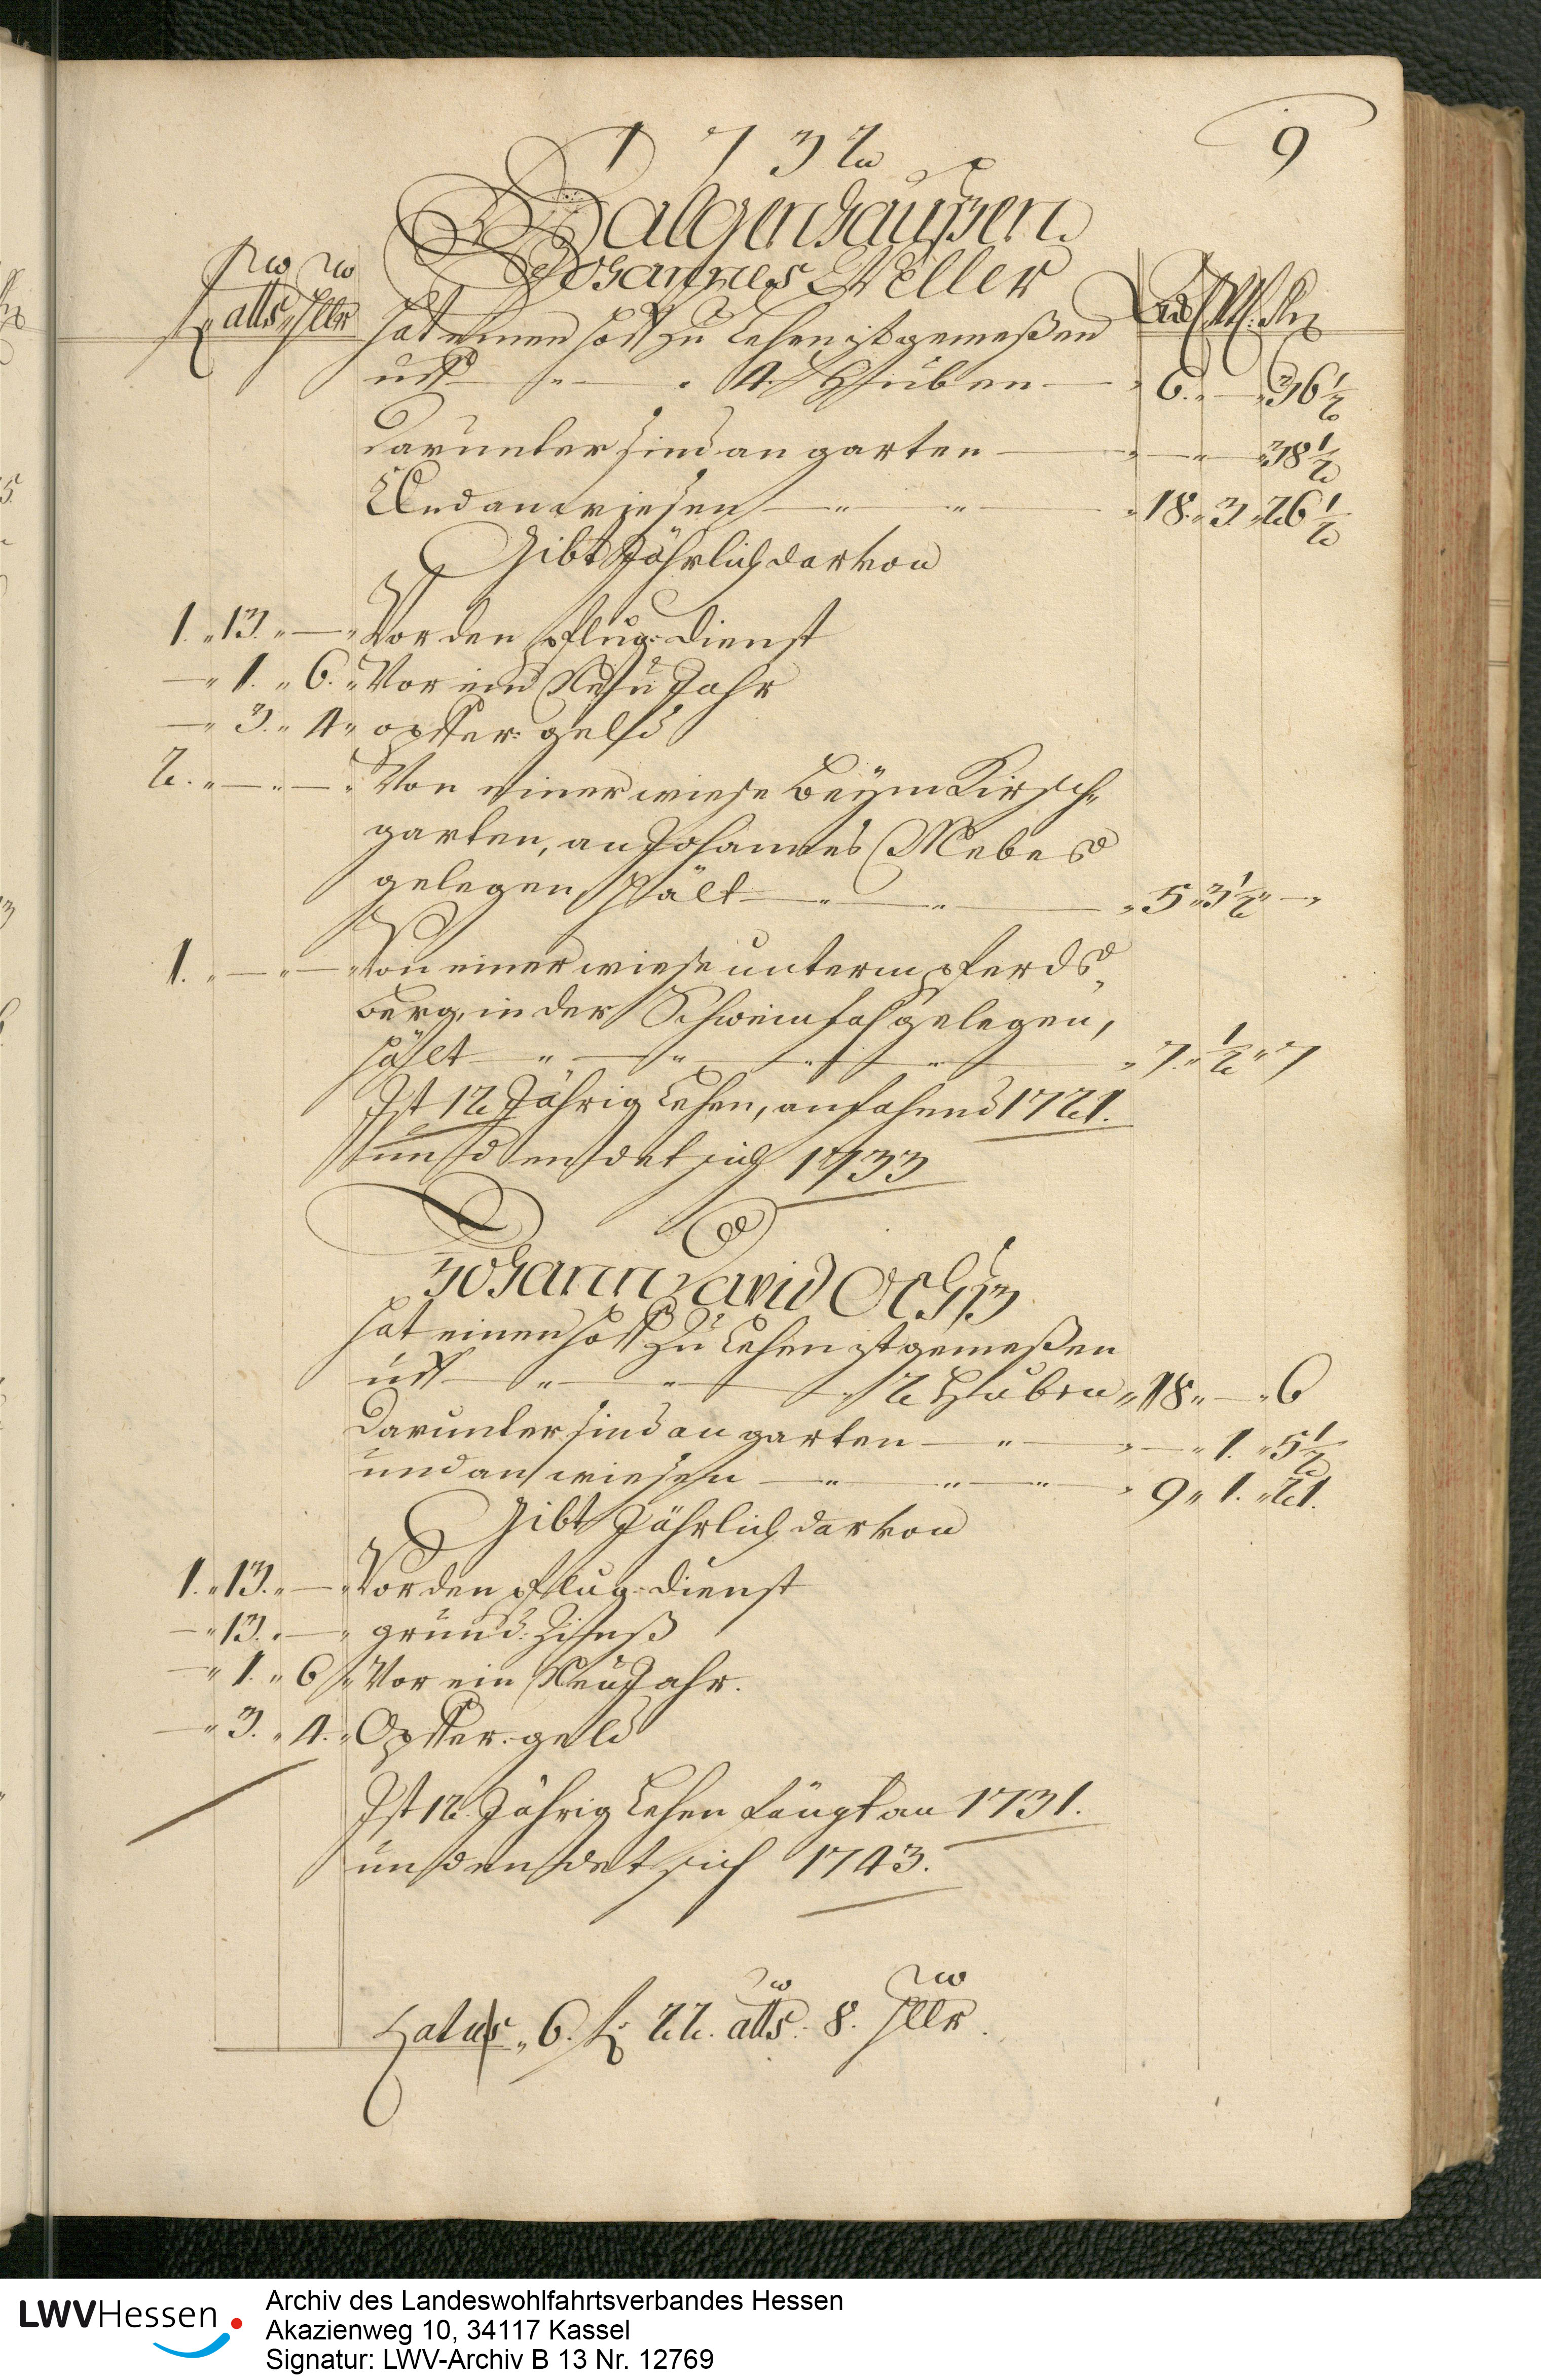 1732
9
Balgenhaußen
Johannes Weller
albs hllr
hat einen hoff zu Lehen ist gemeßen
uff 4. Huben 6. — 36 1/2
Darunter sind an garten — — 38 1/2
Und an wiesen 18. 3 26 1/2
Gibt Jährlich darvon
1. 13. — Vor den pflug dienst
— 1. 6. Vor ein Neu Jahr
— 3. 4 opffer geld
2. — — Von einer wiese beym Kirsch
garten, an Johannes Mebes
gelegen hält 5 3 1/2 —
1. — — Von einer wiese unterm pferds
berg, in der Schweinsfahr gelegen,
hält 7. 1/2 7
Ist 12 Jährig Lehen, anfahend 1721.
und endet sich 1733
Johann David Ochß
hat einen hoff zu Lehen ist gemeßen
uff 2 Huben 18 — 6
Darunter sind an garten — 1. 5 1/2
und an wiesen 9 1. 21.
Gibt Jährlich darvon
1. 13. — Vor den pflug dienst
— 13. — grund: Zinß
— 1. 6 Vor ein Neu Jahr.
— 3. 4. Opffer geld
Ist 12. Jährig Lehen fängt an 1731.
und endet sich 1743.
Latus 6. 22. albs. 8. hllr.
LWVHessen
Archiv des Landeswohlfahrtsverbandes Hessen
Akazienweg 10, 34117 Kassel
Signatur: LWV-Archiv B 13 Nr. 12769